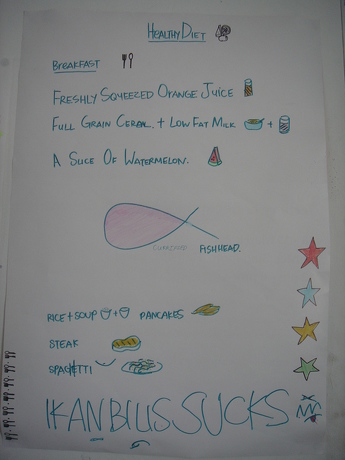 HEALTHY DIET
BREAKFAST
FRESHLY SQUEEZED ORANGE JUICE
FULL GRAIN CEREAL. + LOW FAT MILK +
A SLICE OF WATERMELON.
FISHHEAD.
RICE + SOUP + PANCAKES
STEAK
SPAGHETTI
IKAN BILIS SUCKS